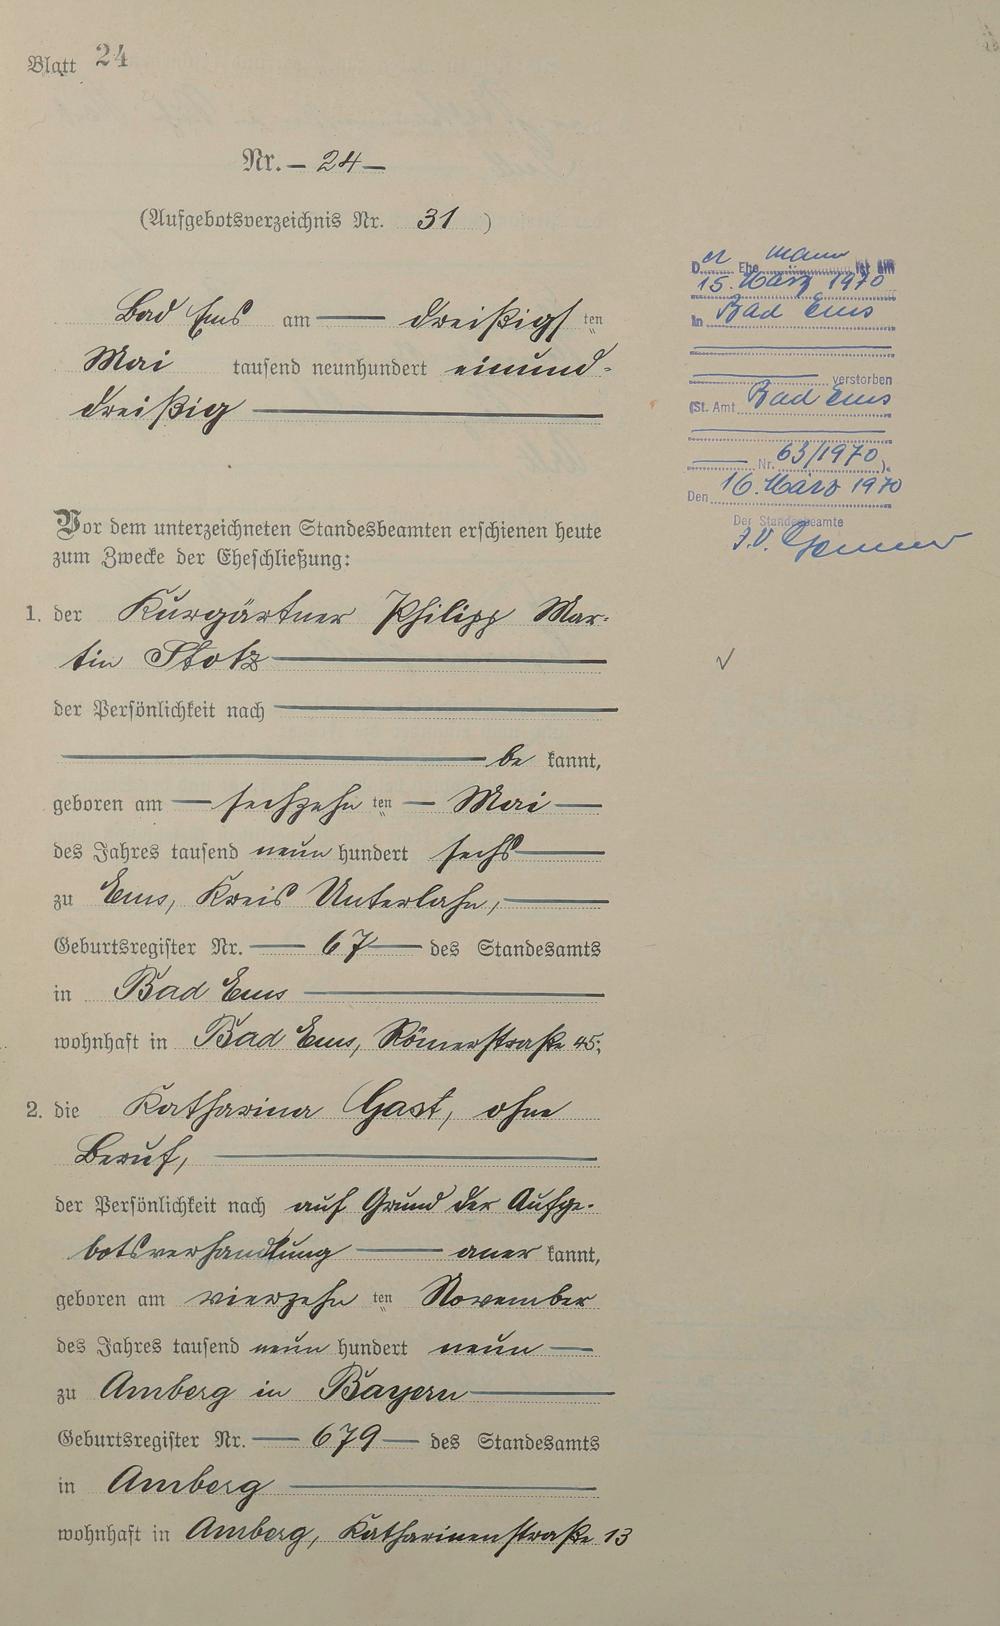 Blatt 24
Nr. — 24 —
(Aufgebotsverzeichnis Nr. 31 )
Bad Ems am — dreißigsten
Mai tausend neunhundert einund-
dreißig
Vor dem unterzeichneten Standesbeamten erschienen heute
zum Zwecke der Eheschließung:
1. der Kurgärtner Philipp Mar-
tin Stotz
der Persönlichkeit nach
be kannt,
geboren am — sechzehn ten — Mai —
des Jahres tausend neun hundert sechs
zu Ems, Kreis Unterlahn,
Geburtsregister Nr. — 67 — des Standesamts
in Bad Ems
wohnhaft in Bad Ems, Römerstraße 45;
2. die Katharina Gast, ohne
Beruf,
der Persönlichkeit nach auf Grund der Aufge-
botsverhandlung — aner kannt,
geboren am vierzehn ten November
des Jahres tausend neun hundert neun —
zu Amberg in Bayern
Geburtsregister Nr. — 679 — des Standesamts
in Amberg
wohnhaft in Amberg, Katharinenstraße 13
Der Ehemann ist am
15. März 1970
in Bad Ems
verstorben
(St. Amt Bad Ems
Nr. 63/1970).
Den 16. März 1970
Der Standesbeamte
J.V.